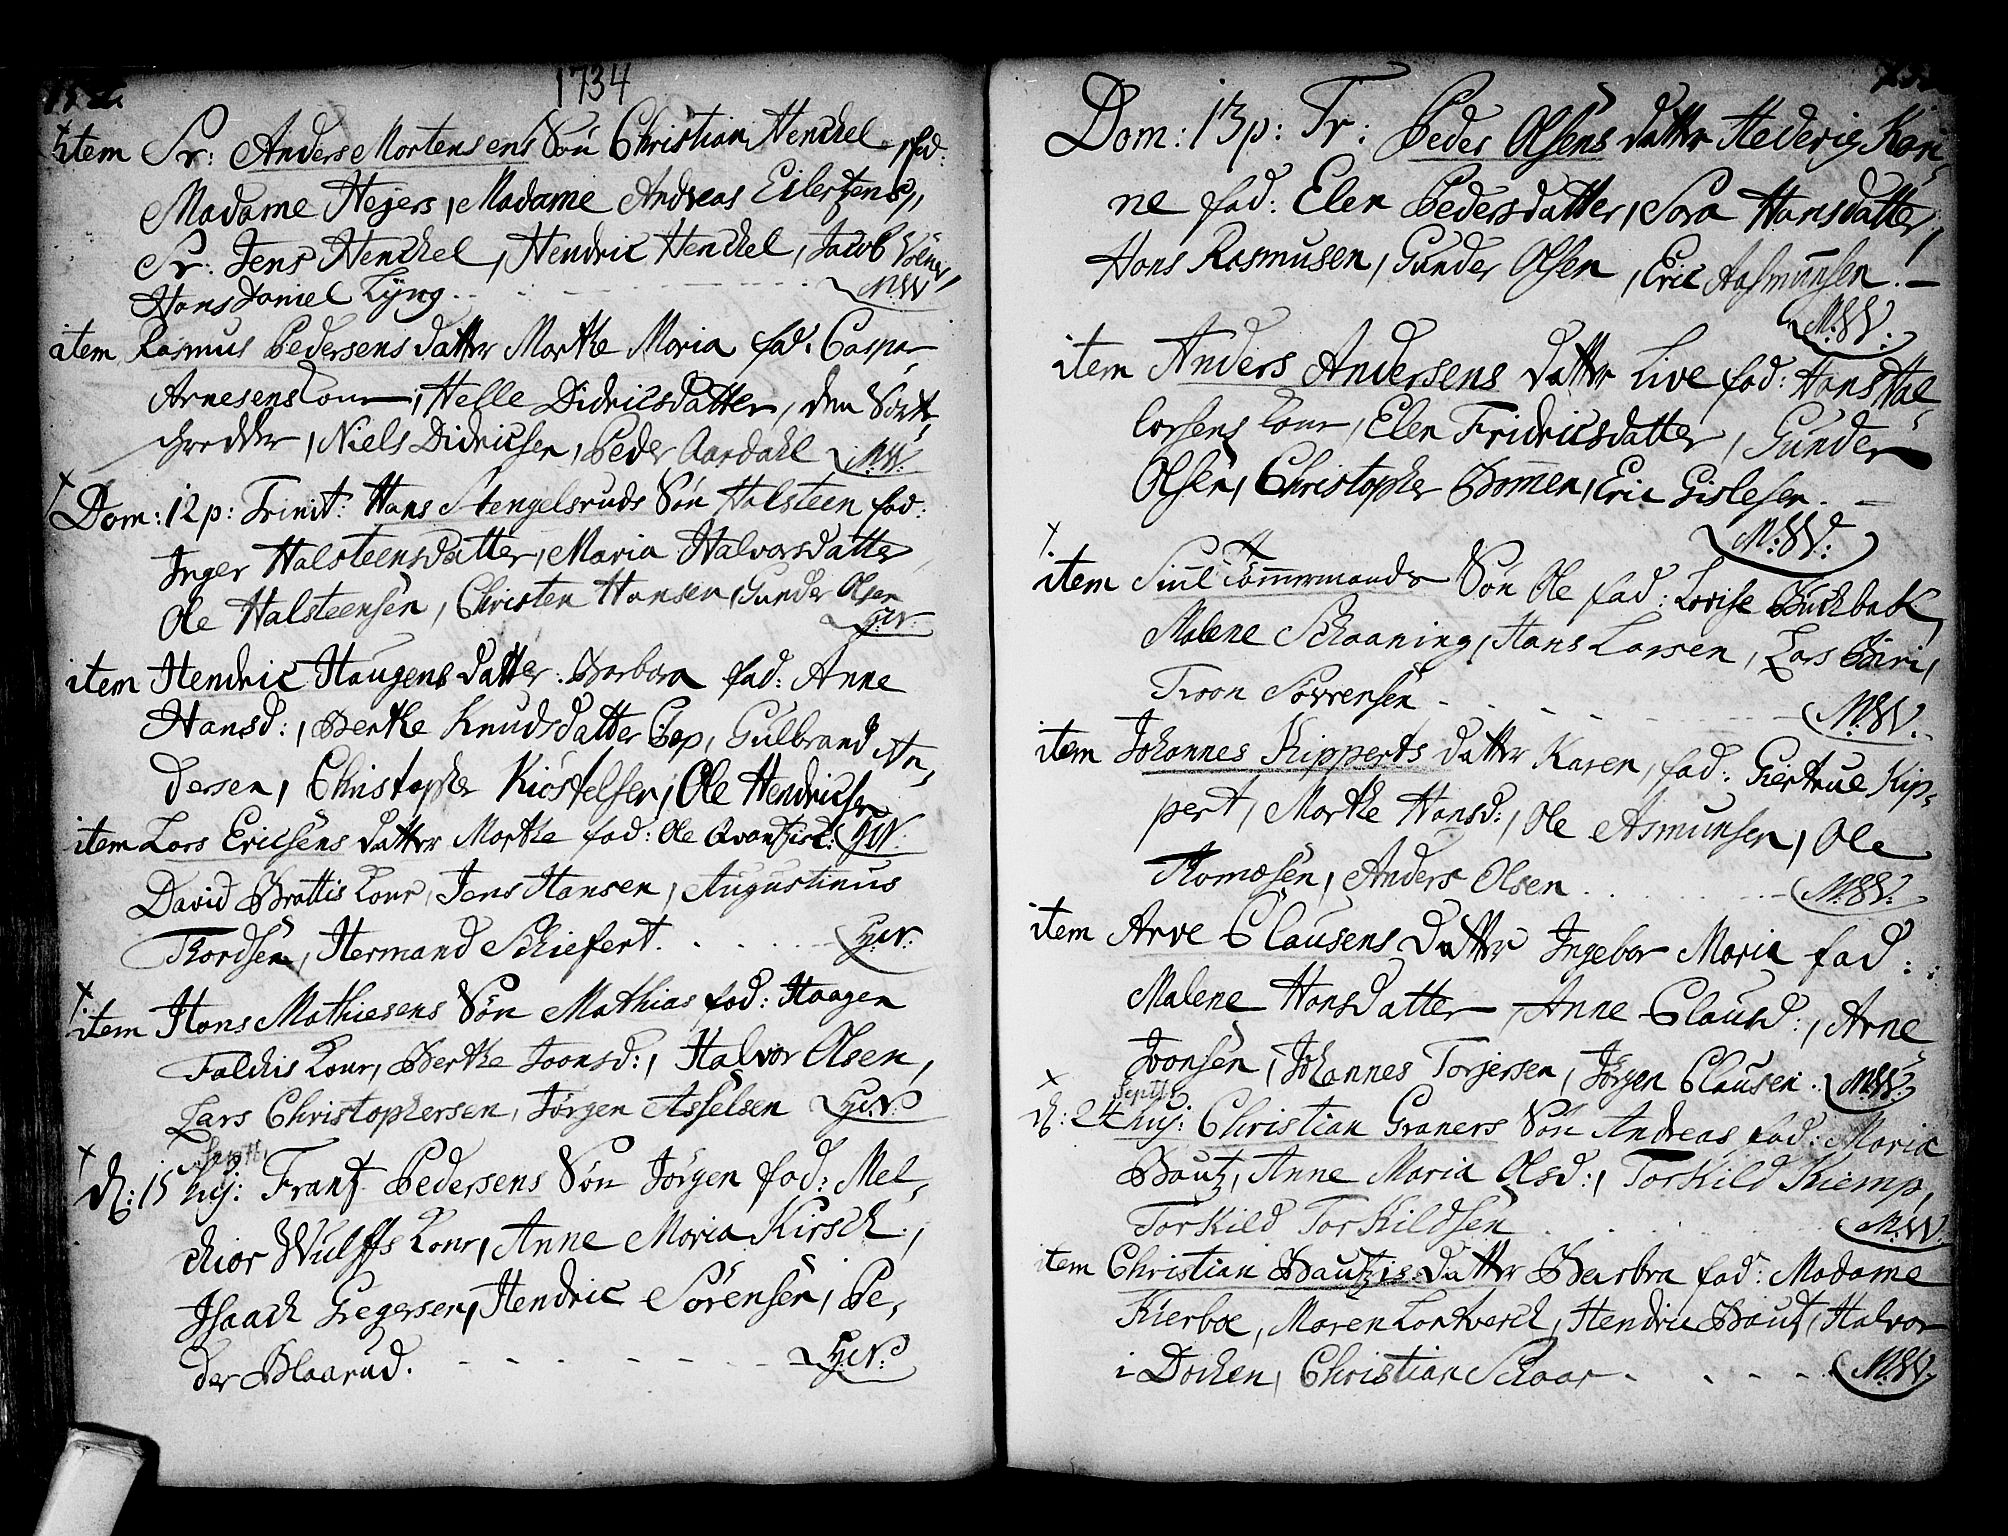 1734
item Sr: Anders Mortensens Søn Christian Henckel, fad:
Madame Hejers, Madame Andreas Eilertzens,
Sr: Jens Henckel, Hendric Henckel, Jacob
Hans Daniel Lÿng. M:W
item Rasmus Pedersens datter Marthe Maria fad: Caspar
Arnesens Konr, Helle Didricsdatter, den
Niels Didrichsen, Peder Aardahl M:W:
Dom: 12 p: Trinit: Hans Stengelsruds Søn Halsteen fad:
Inger Halsteensdatter, Maria Halvorsdatter,
Ole Halsteensen, Christen Hansen, Gunder Olsen
item Hendric Haugens datter Barbara fad: Anne
Hansd:, Berthe Knudsdatter Pep, Gulbrand An,
dersen, Christopher Kiöstelsen, Ole Hendricsen
item Lars Ericsens datter Marthe fad: Ole
David Brattis Konr, Jens Hansen, Augustinus
Thordsen, Hermand Schiefert.
item Hans Mathiesens Søn Mathias fad: Haagen
Falchis Konr, Berthe Joonsd:, Halvor Olsen,
Lars Christophersen, Jørgen Asselsen
Septb
d: 15 huj: Frantz Pedersens Søn Jørgen fad: Mel,
chior Wulffs Konr, Anne Maria Kirsch,
Isaach Gregersen, Hendric Sørensen, Pe,
der Blaarud.
Dom: 13 p: Tr: Peder Olsens datter Hedevig Kari,
ne fad: Elen Pedersdatter, Sara Hansdatter,
Hans Rasmusen, Gunder Olsen, Eric Aasmunsen.
M:W:
item Anders Andersens datter Live fad: Hans Hal,
vorsens Konr, Elen Fridricsdatter, Gunder
Olsen, Christopher Bomen, Eric Gislesen.
M:W:
item Siul Tömmermands Søn Ole fad: Lovise Buchbak,
Malene Schaaning, Hans Larsen, Lars
Troon Sörrensen M:W:
item Johannes Kipperts datter Karen, fad: Giertrue Kip,
pert, Marthe Hansd:, Ole Asmunsen, Ole
Thomæsen, Anders Olsen. M:W:
item Arve Clausens datter Ingebor Maria fad:
Malene Hansdatter, Anne Clausd:, Arne
Joonsen, Johannes Torjersen, Jørgen Clausen. M:W:
Septb
d: 24 huj: Christian Graners Søn Andreas fad: Maria
Bautz, Anne Maria Olsd:, Torkild Kiemp,
Torkild Torkildsen M:W:
item Christian Bautzis datter Barbra fad: Madame
Kierboe, Maren Lortverch, Hendric Bautz, Halvor
i Dochen, Christian Schaar. M:W: